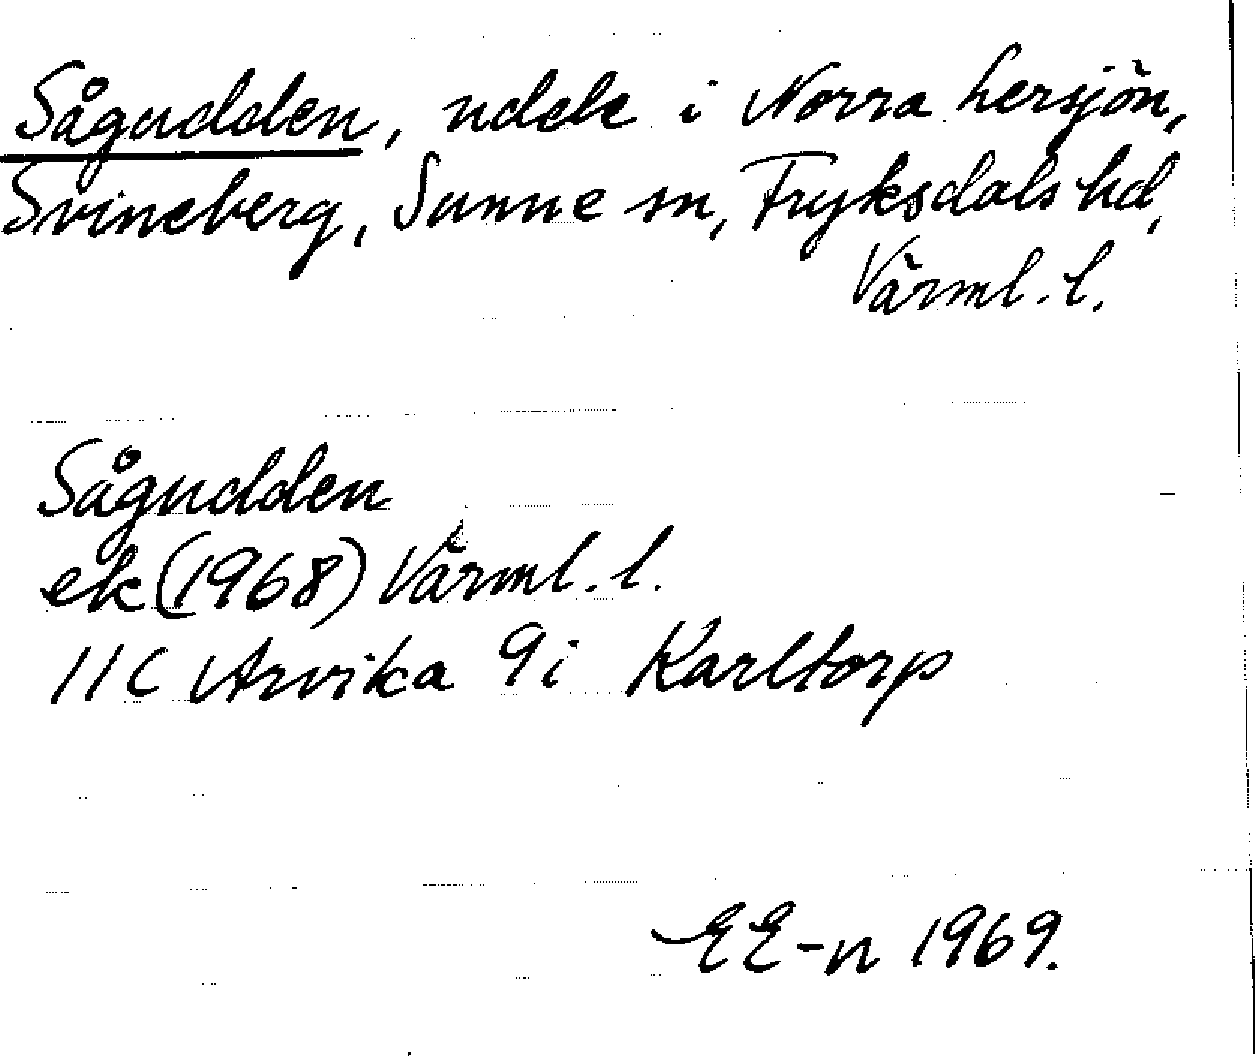 Sågudden, udde i Norra Lersjön,
Svineberg, Sunne sn, Fryksdals hd,
Värml. l.
Sågudden
ek (1968) Värml. l.
11C Arvika 9i Karltorp
EE-n 1969.